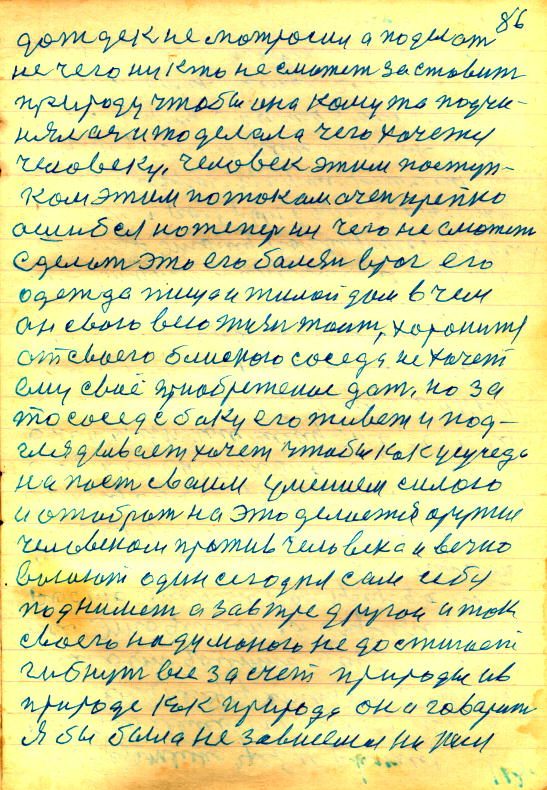 86
дождек не мотросил а поделат
не чего ни кто не сможет заставит
природу чтобы она кому то подчи-
нялася и поделала чего хочется
человеку, человек этим поступ-
ком этим потоком очен крепко
ошибся но теперь ни чего не сможет
сделат это его балезн враг его
одежда пища и жилой дом в чем
он свого вею жизн таит, хоронится
от своего блиского соседа не хочет
ему своё приобретение дат, но за
то сосед с боку его живет и под-
глядывает хочет чтобы как у суседа
напаст своим умением силою
и отобрат на это делается оружие
человеком против человека и вечно
воюют один сегодня сам себя
поднимет а завтре другой и так
своего надуманого не достигает
гибнут все за счет природы и в
природе как природа она говарит
я бы была не зависема ни